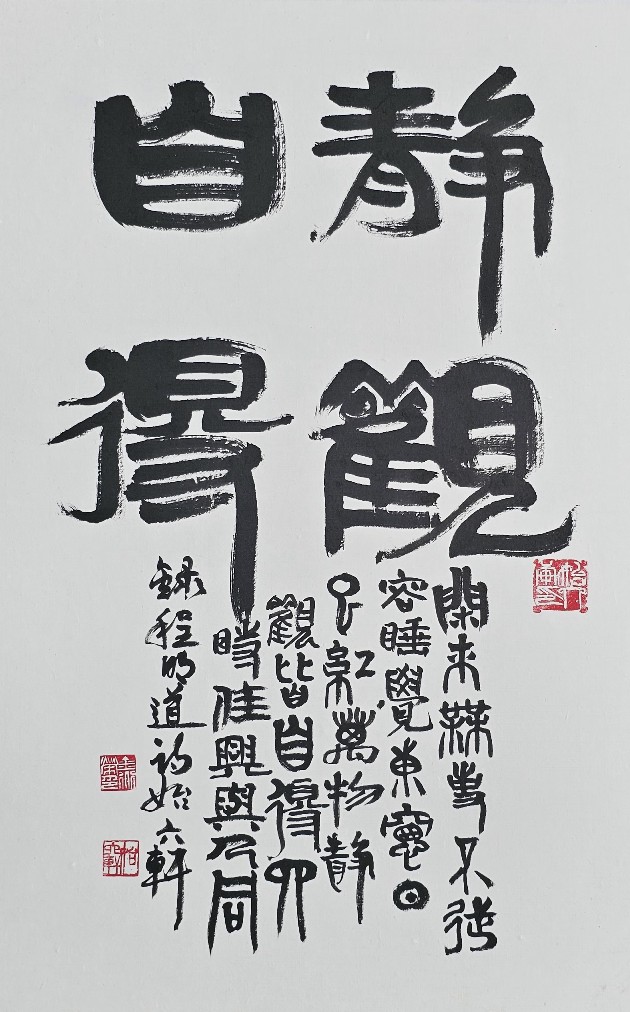 静觀
自得
閑來無事不從
容睡覺東窗日
已紅萬物静
觀皆自得四
時佳興與人同
錄程明道詩 六軒